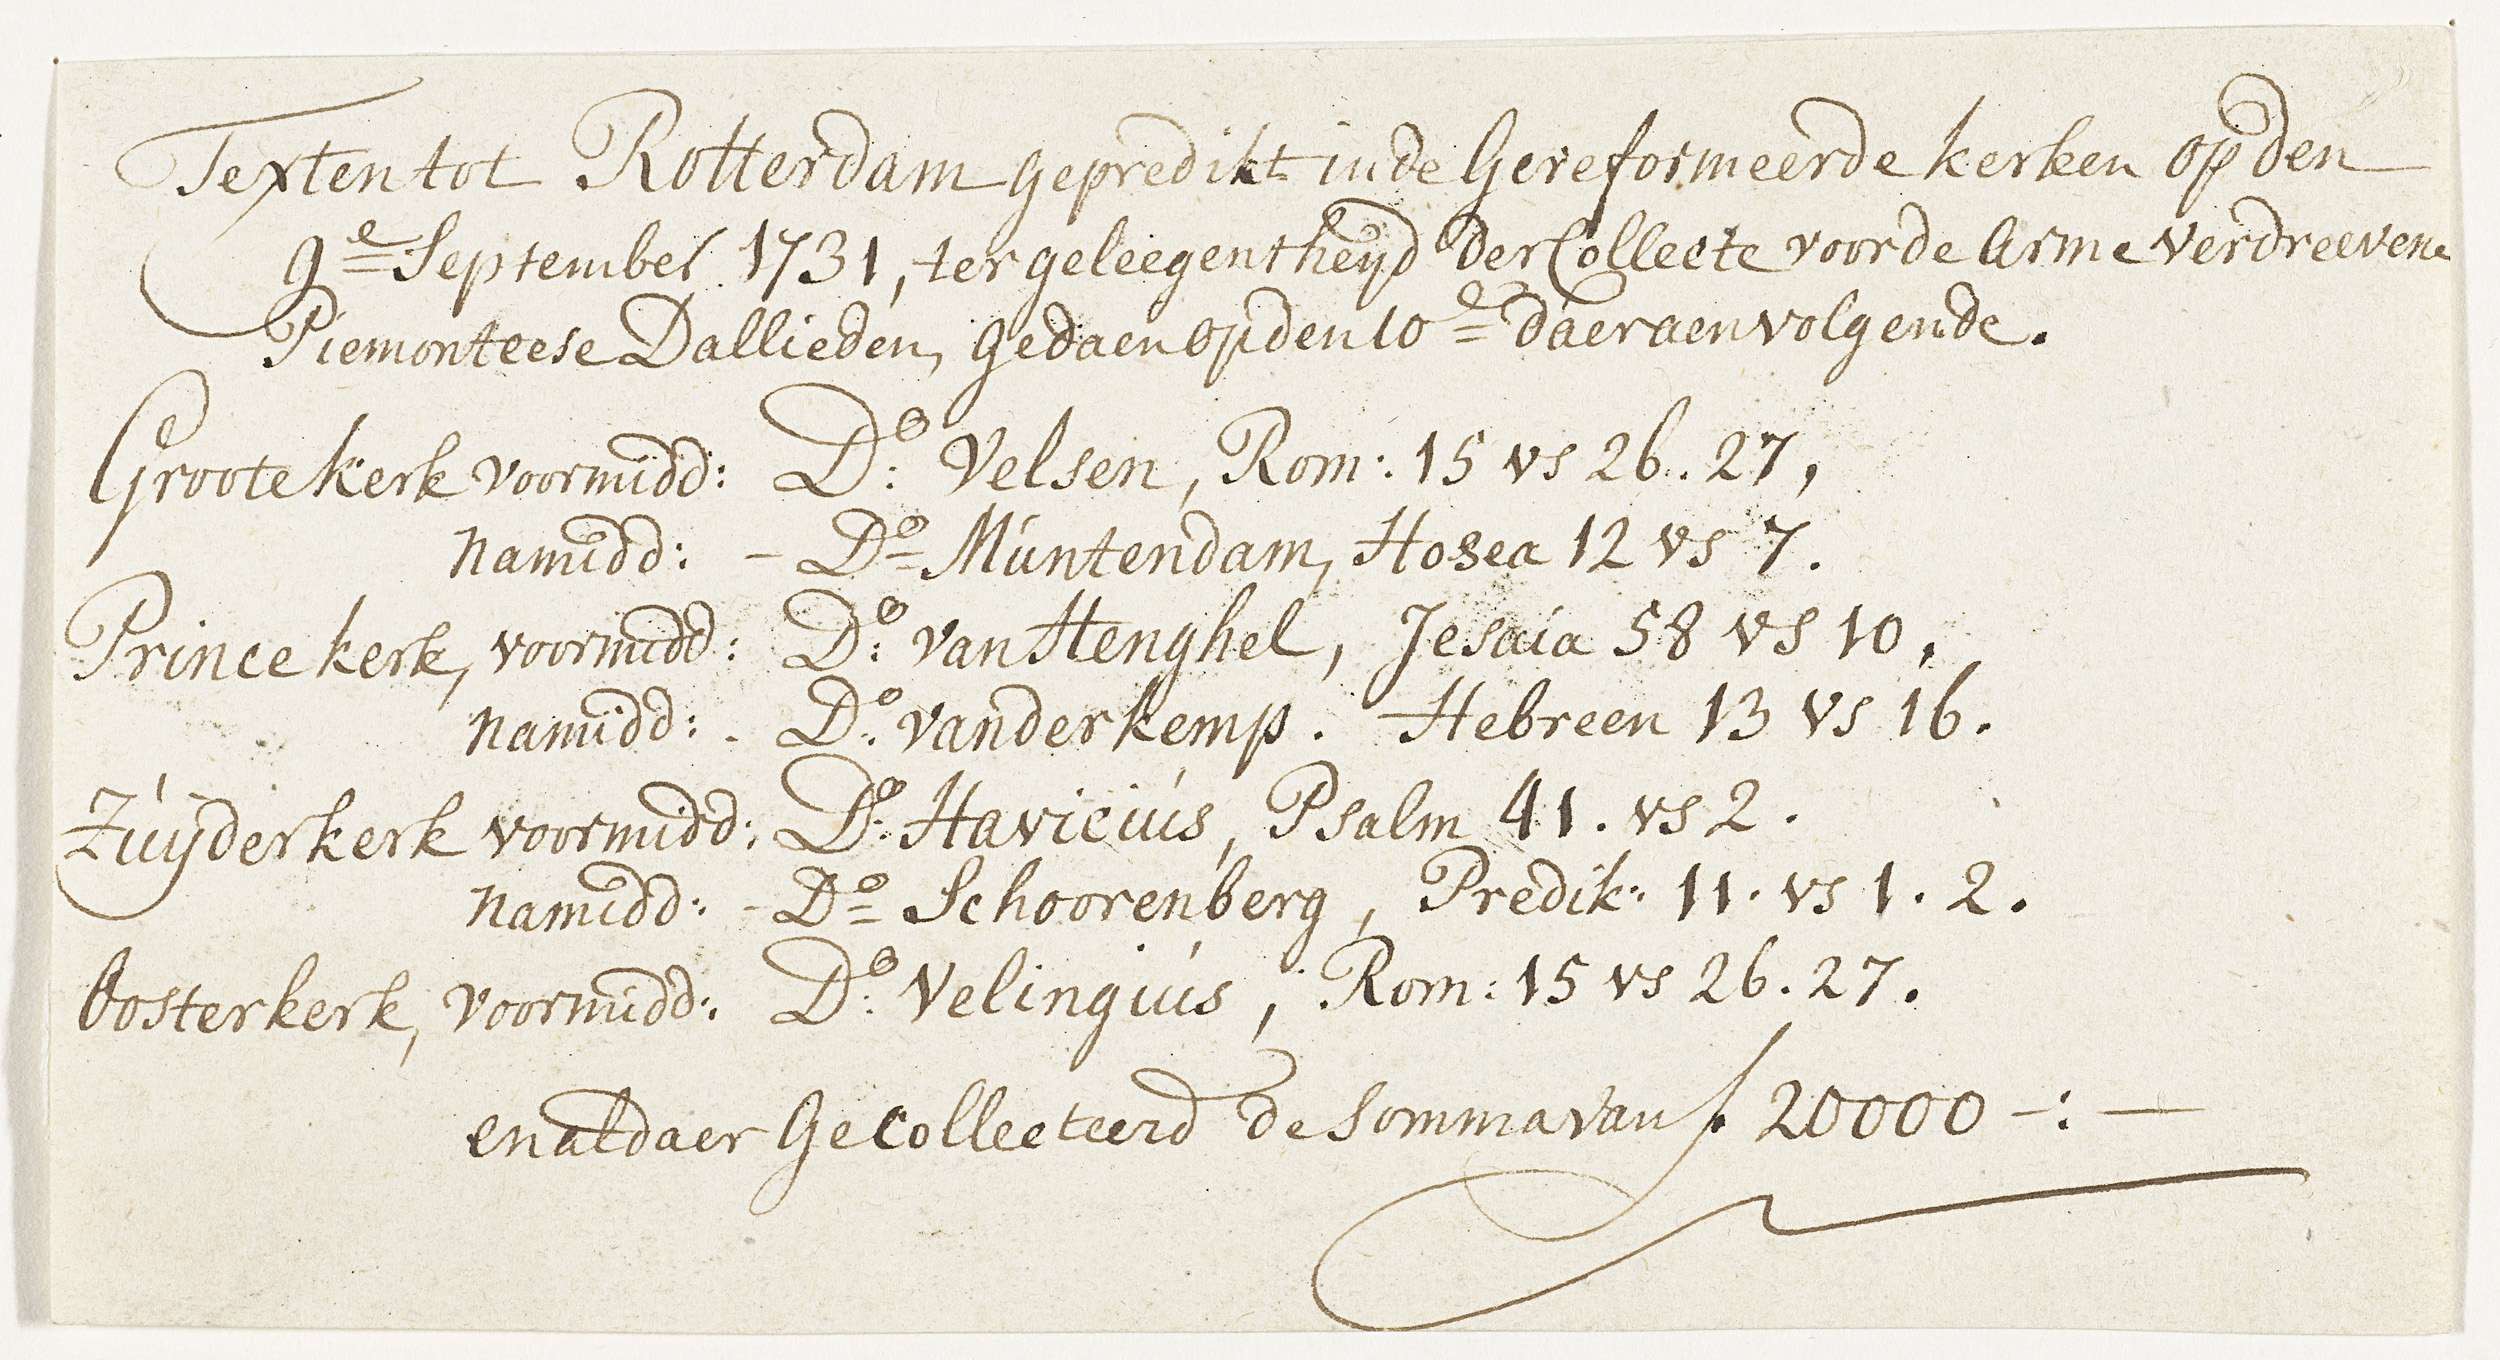 Texten tot Rotterdam gepredikt in de Gereformeerde kerken op den
9e September 1731, ter geleegentheyd der Collecte voor de Arme verdreevene
Piemonteese Dallieden, gedaen op den 10e daeraenvolgende.
Groote kerk voormidd: Do: Velsen, Rom: 15 vs 26. 27,
namidd: - Do Muntendam, Hosea 12 vs 7.
Prince kerk, voormidd: Do: van Henghel, Jesaia 58 vs 10,
namidd: - Do: vander kemp. Hebreen 13 vs 16.
Zuÿderkerk voormidd: Do: Havicius, Psalm 41. vs 2.
namidd: - Do Schoorenberg, Predik: 11. vs 1. 2.
Oosterkerk, voormidd: Do: Velingius, Rom: 15 vs 26. 27.
en aldaer Gecollecteerd de Somma van f. 20000 -:-